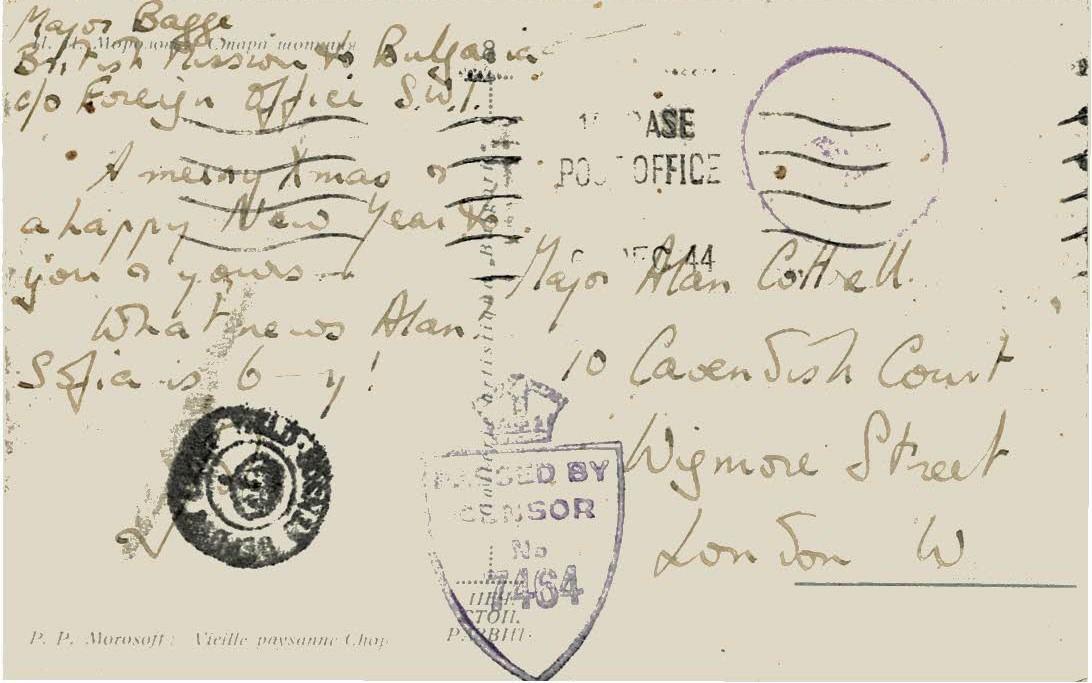 Major Bagge
British Mission to Bulgaria
c/o Foreign Office S.W.1.
A merry Xmas &
a happy New Year to
you & yours —
What news Alan.
Sofia is 6 — y!
ASE
POST OFFICE
DEC 44
Major Alan Cottrell.
10 Cavendish Court
Wigmore Street
London W
PASSED BY
CENSOR
No
7464
P. P. Morosoff: Vieille paysanne Chop